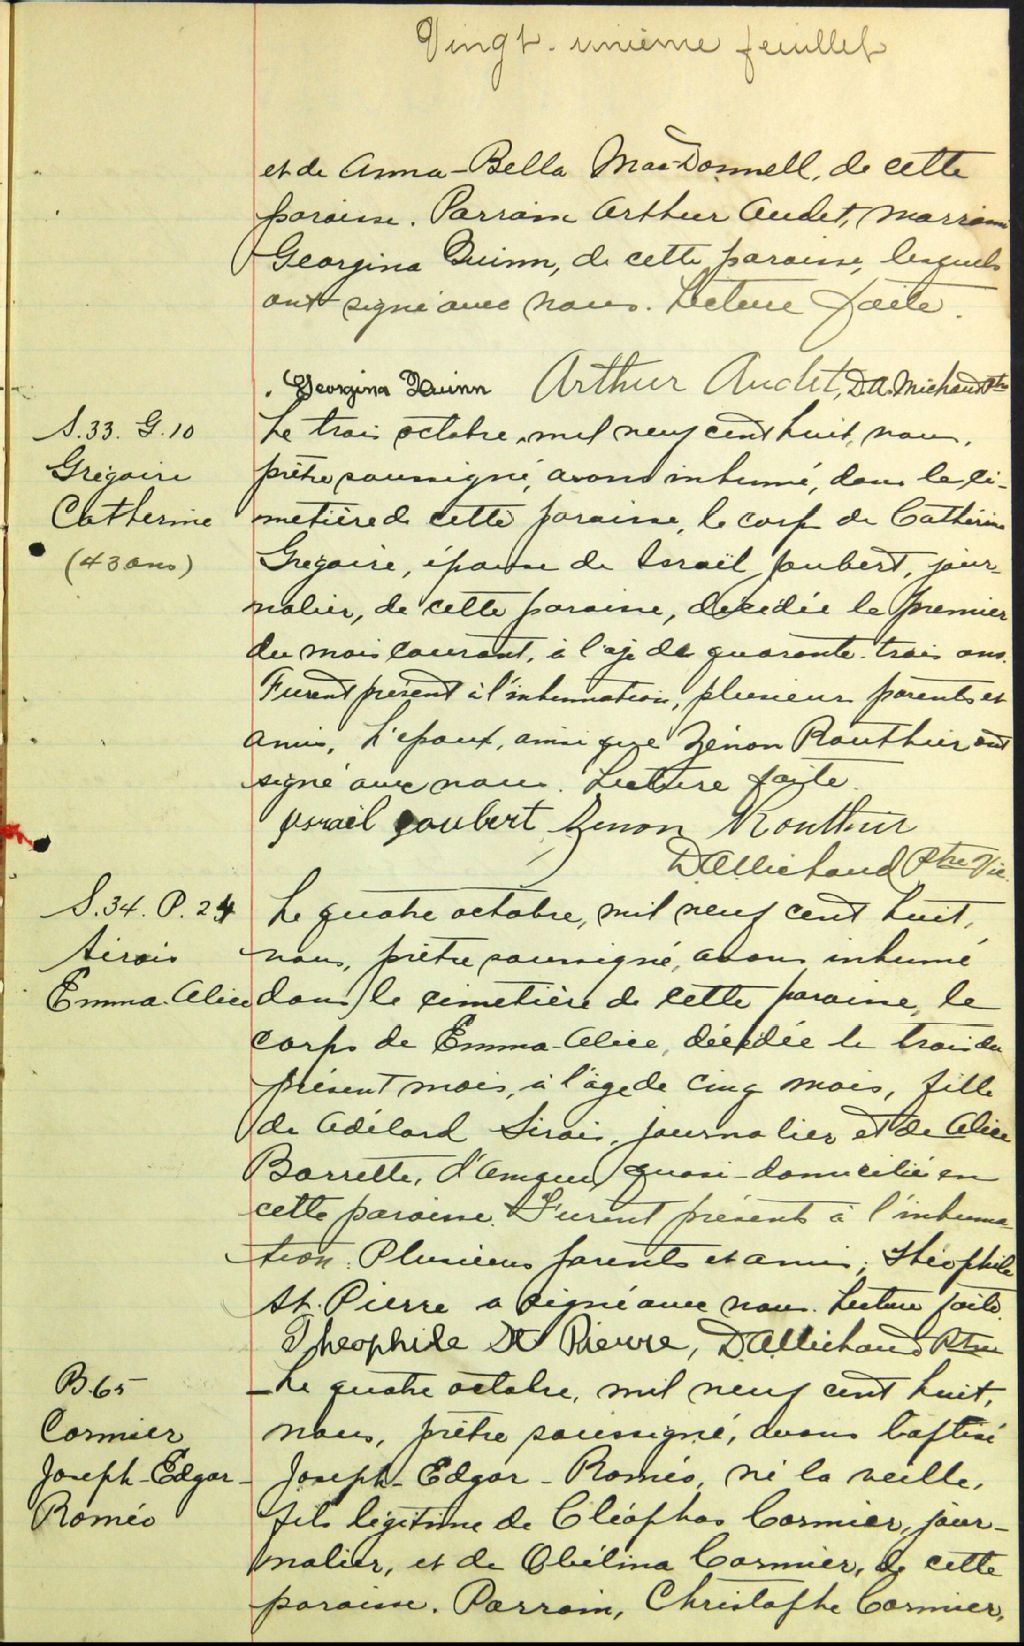 Vingt-unième feuillet
et de Anna-Bella MacDonnell, de cette
paroisse. Parrain Arthur Audet, marraine
Georgina Quinn, de cette paroisse, lesquels
ont signé avec nous. Lecture faite.
Georgina Quinn Arthur Audet, D.A. Michaud Ptre
S.33. G.10
Grégoire
Catherine
(43 ans)
Le trois octobre, mil neuf cent huit, nous,
prêtre soussigné, avons inhumé, dans le ci-
metière de cette paroisse, le corps de Catherine
Grégoire, épouse de Israël Joubert, jour-
nalier, de cette paroisse, décédée le premier
du mois courant, à l'âge de quarante-trois ans.
Furent présent à l'inhumation, plusieurs parents et
amis. L'époux, ainsi que Zénon Routhier ont
signé avec nous. Lecture faite.
Israël Joubert Zenon Routhier
DAMichaud Ptre Vic.
S.34. P.24
Sirois
Emma-Alice
Le quatre octobre, mil neuf cent huit,
nous, prêtre soussigné, avons inhumé
dans le cimetière de cette paroisse, le
corps de Emma-Alice, décédée le trois du
présent mois, à l'âge de cinq mois, fille
de Adélard Sirois, journalier et de Alice
Barrette, d'Amqui, quasi-domicilié en
cette paroisse. Furent présents à l'inhuma-
tion. Plusieurs parents et amis, Théophile
St. Pierre a signé avec nous. Lecture faite.
Theophile St Pierre, DAMichaud Ptre
B.65
Cormier
Joseph-Edgar-
Roméo
Le quatre octobre, mil neuf cent huit,
nous, prêtre soussigné, avons baptisé
Joseph-Edgar-Roméo, né la veille,
fils légitime de Cléophas Cormier, jour-
nalier, et de Obélina Cormier, de cette
paroisse. Parrain, Christophe Cormier,